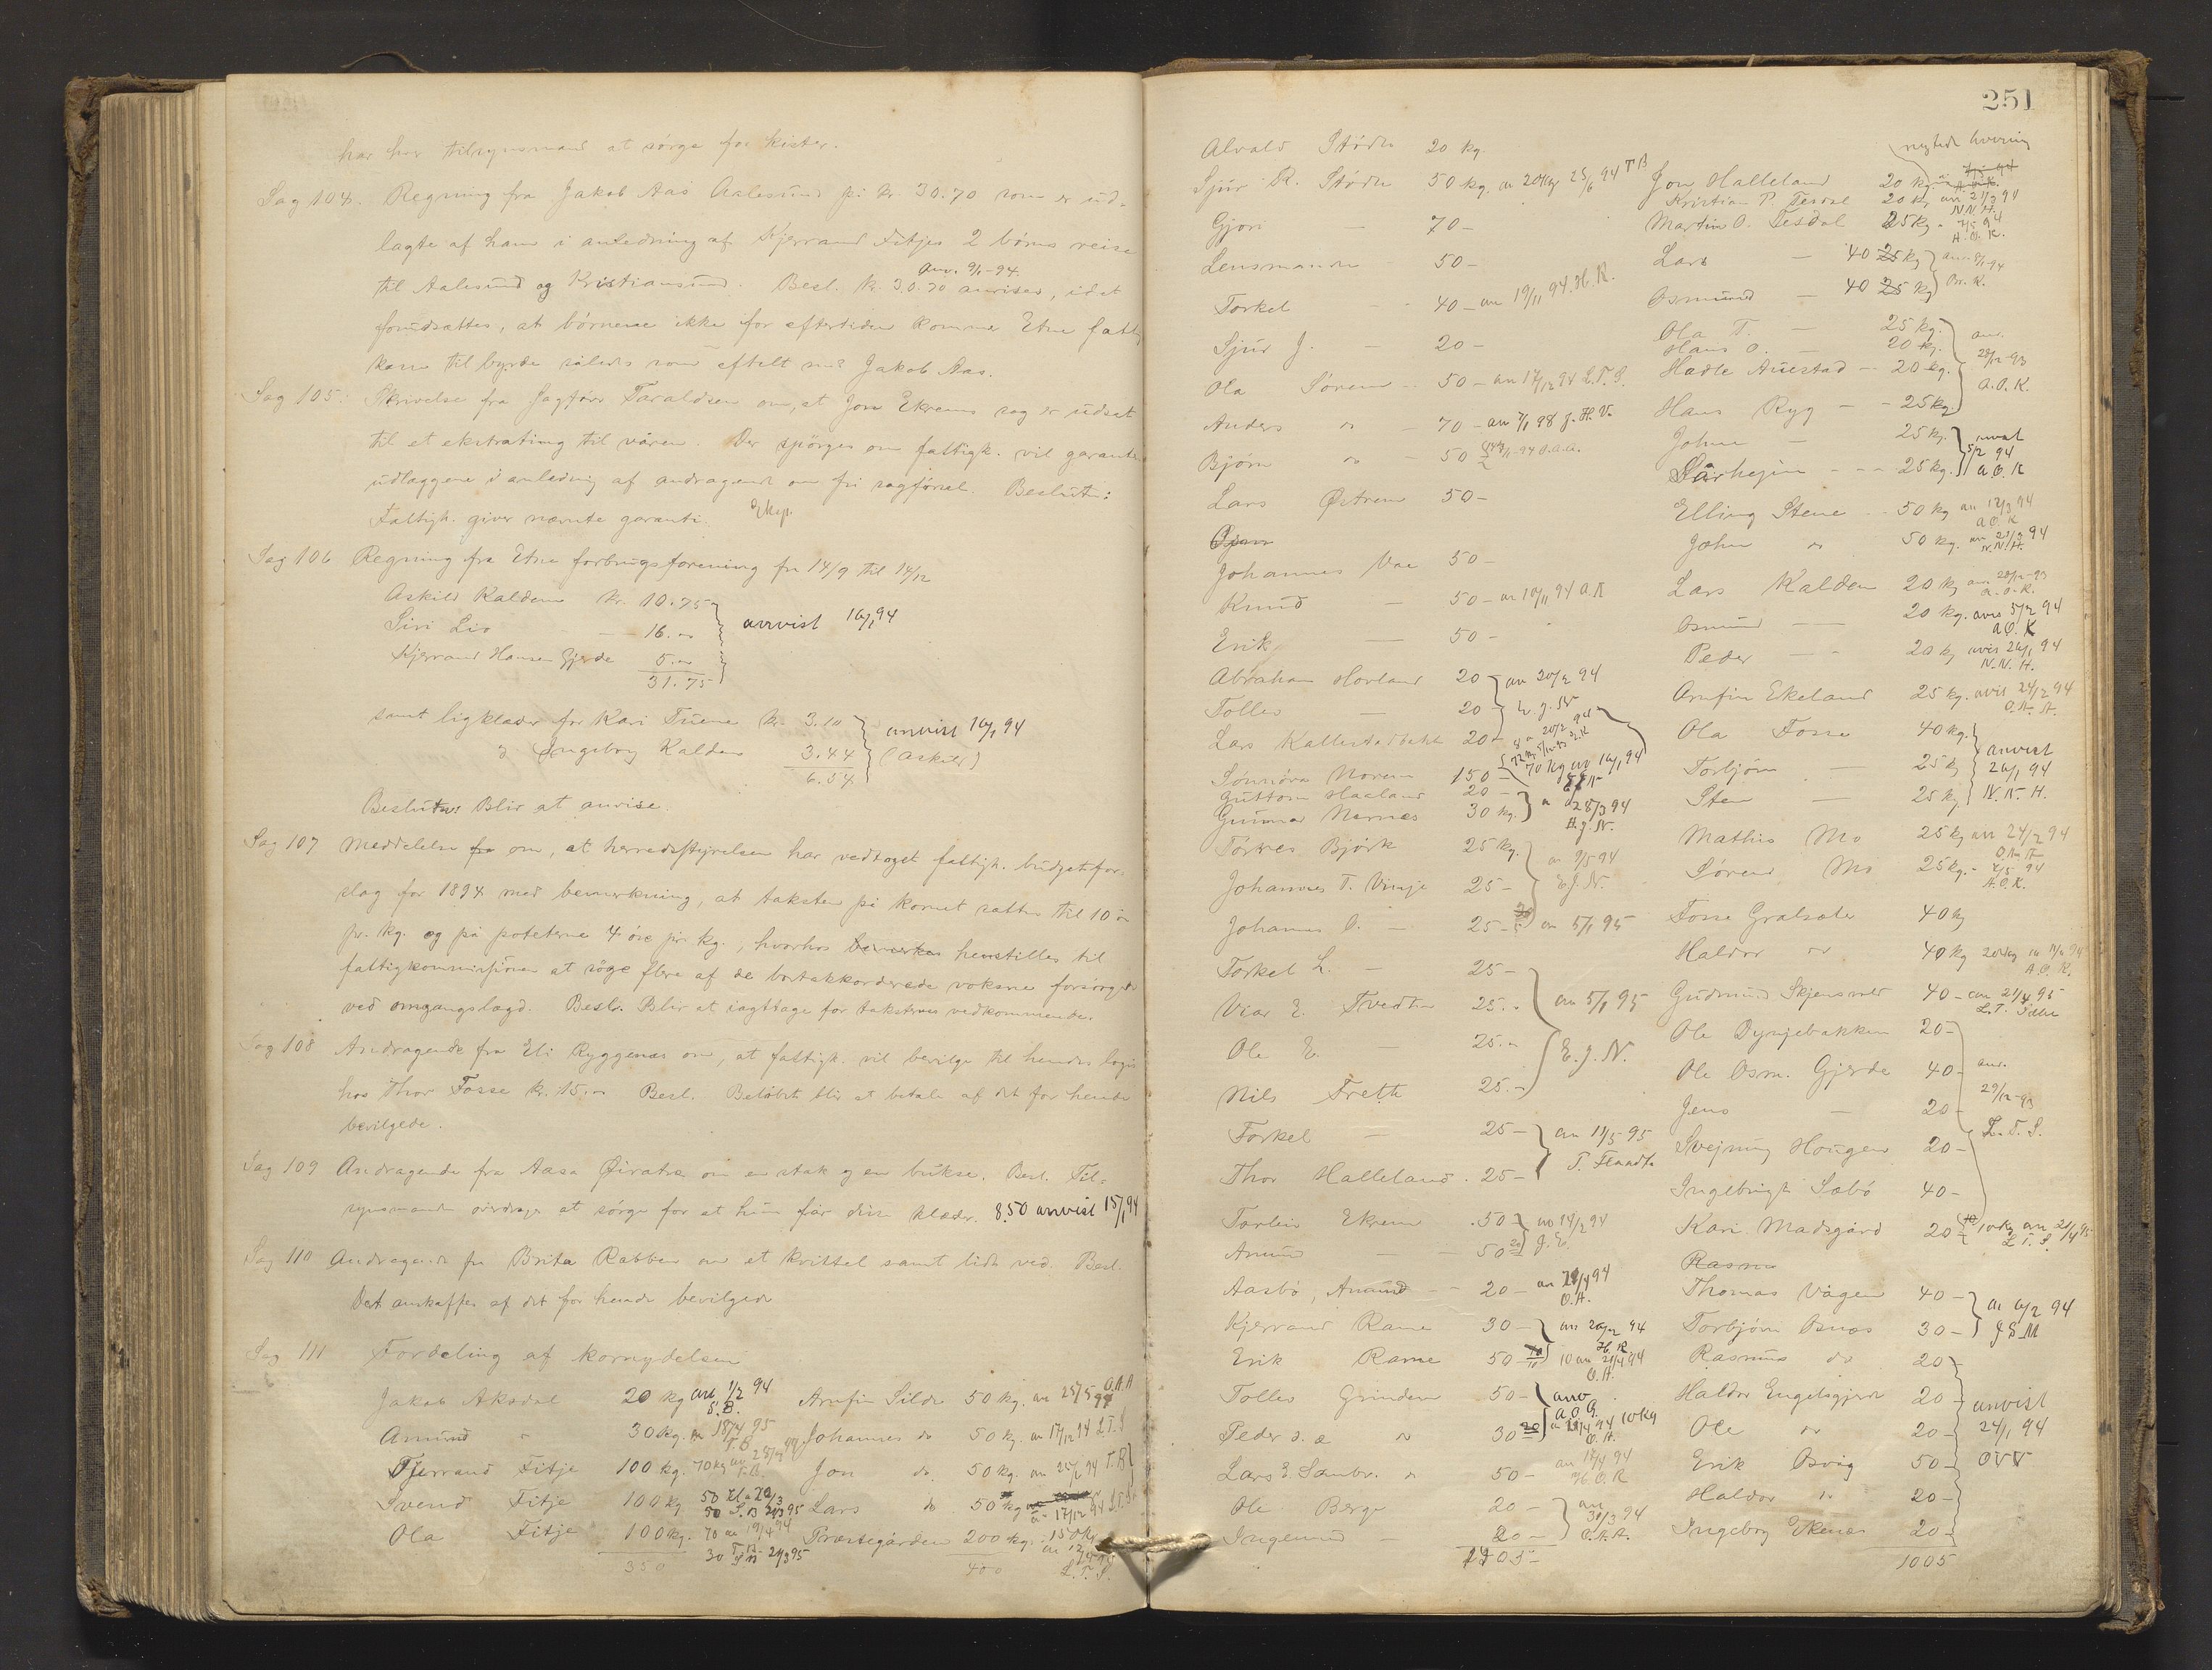 har hver tilsynsmand at sørge for kister.
Sag 104. Regning fra Jakob Aas Aalesund på kr. 30.70 som er ud-
lagte af ham i anledning af Kjerrand Fitjes 2 børns reise
til Aalesund og Kristiansund. Besl. kr. 30.70 anvises, idet
anv. 9/1-94.
forudsættes, at børnene ikke for eftertiden komme Etne fattig
kasse til byrde således som aftalt med Jakob Aas.
Sag 105: Skrivelse fra Sagfører Taraldsen om, at Jon Ekrems sag er udsat
til et ekstrating til våren. Der spørges om fattigk. vil garantere
udlæggene i anledning af andragende om fri sagførsel. Beslutn:
Fattigk. giver nævnte garanti. Eksp.
Sag 106 Regning fra Etne forbrugsforening fra 14/9 til 14/12
Askild Kaldem kr. 10.75
Siri Lio - 16. "
Kjerrand Hansen Gjerde 5. "
31.75
anvist 16/1 94
samt ligklæder for Kari Tuene kr. 3.10
og Ingeborg Kaldem 3.44
6.54
anvist 16/1 94
(Askild)
Beslutn: Blir at anvise.
Sag 107 Meddelelse fra om, at herredsstyrelsen har vedtaget fattigk. budgetfor-
slag for 1894 med bemerkning, at taksten på kornet sættes til 10 ør
pr. kg. og på poteterne 4 øre pr. kg., hvorhos bemerkes henstilles til
fattigkommissionen at søge flere af de bortakkorderede voksne forsørgede
ved omgangslægd. Besl. Blir at iagttage for taksternes vedkommende.
Sag 108 Andragende fra Eli Ryggenæs om, at fattigk. vil bevilge til hendes logis
hos Thor Fosse kr. 15. " Besl. Beløbet blir at betale af det for hende
bevilgede.
Sag 109 Andragende fra Aasa om en stak og en bukse. Besl. Til-
synsmanden overdrages at sørge for at hun får disse klæder. 8.50 anvist 15/1 94
Sag 110 Andragende fra Brita Rabben om et kvittel samt lidt ved. Besl.
Det anskaffes af det for hende bevilgede
Sag 111 Fordeling af kornydelsen
Jakob Aksdal 20 kg anv 1/2 94 S.B.
Amund " 30 kg. an 18/4 95 T.B
Kjerrand Fitje 100 kg. 70 kg an T.B.
Svend Fitje 100 kg
Ola Fitje 100 kg. 70 an 19/4 94
30 21/3 95
350
Arnfin Silde 50 kg. an 25/5 94 O.A.A
Johannes do 50 kg. an 17/12 94 L.T.S
Jon do. 50 kg. an 25/6 94 T.B
Lars do 50 kg a 17/12 94 L.T.S.
Præstegården 200 kg. 150 kg
L.T.S.
400
251
Alvald Stødle 20 kg.
Sjur R. Stødle 50 kg. an 20 kg 25/6 94 T B
Gjøn - 70 -
Lensmanden 50 -
Torkel - 40 - an 19/11 94. H. K.
Sjur J. - 20 -
Ola Sørem - 50 - an 17/12 94 L.T.S.
Anders " - 70 - an 7/1 98 J. H. V.
Bjørn " - 50
Lars Østrem 50 -
Johannes Vae 50 -
Knud - 50 - an 10/11 94 A.K
Erik - 50 -
Abraham Hovland 20 - an 20/2 94
Tollev - 20 - E.J.N
Lars Kallestadbakk 20 -
Sønnøve Norem 150 - 70 kg an 16/1 94
Guttorm Haaland 20 -
Gunnar Mærnæs 30 kg. a 28/3 94
E.J.N.
Tørres Bjørk 25 kg. an 9/5 94
Johannes T. Vinje 25 - E.J.N.
Johannes O. - 25 - an 5/1 95
Torkel L. - 25 -
Viar E. Tvedten 25. " an 5/1 95
Ole E. - 25. " E. J. N.
Nils Frette 25. -
Torkel - 25 - an 11/5 95
Thor Halleland. 25 -
Torleiv Ekrem . 50 an 14/2 94
Amund - - 50 J.E.
Aasbø, Amund - 20 - an 21/4 94
O.H.
Kjerrand Rame 30 - an 20/2 94
H. K
Erik Rame 50 10 an 21/4 94
O.H.
Tollev Grinden 50 - anv
A O G.
Peder s. æ " 30 10 kg
O. H.
Lars E. Sanbr. " 50 - an 17/4 94
Ole Berge 20 - an
30/3 94
Ingemund - 20 - O.A.A.
1705 -
nægtede levering
Jon Halleland 20 kg.
Kristian P. Tesdal 20 kg an 21/3 94
N N H.
Martin O. Tesdal 25 kg. - 7/5 94
H. O. K.
Lars - 40 25 kg
Osmund - 40 25 kg Br. K.
Ola T. 25 kg.
Hans O. - 20 kg. anv.
Hadle Austad - 20 kg. 28/12-93
A.O.K.
Hans Ryg - - 25 kg.
Johan - 25 kg. anvist
5/2 94
Sørhejm - - - 25 kg. A.O.K
Elling Stene - 50 kg an 12/3 94
A O. K
John " 50 kg. an 21/3 94
N.N.H.
Lars Kaldem 20 kg anv 28/12-93
A.O.K.
Osmund - - 20 kg. anv 5/2 94
A O. K
Peder - - 20 kg avis 26/1 94
N. N. H.
Arnfin Ekeland 25 kg. avis 24/2 94
Ola Fosse 40 kg. anvist
Torbjørn - 25 kg 26/1 94
Sten - 25 kg N. N. H.
Mathis Mo 25 kg an 24/2 94
Søren Mo 25 kg. - 7/5 94
A. O. K.
Fosse Gralsæter 40 kg
Haldor " 40 kg
A. O. K.
Gudmund Skjensvold 40 - an 21/4 95
L.T. Sæbø
Ole Dyrjebakken 20 -
Ole Osm. Gjerde 40 - anv.
29/12-93
Jens - 20 -
L. T. S.
Svejnung Hougen 20 -
Ingebrigt Sæbø 40 -
Kari Madsgård 20 10 kg an 21/4 95
L T. S.
Rasmus
Thomas Vågen 40 -
Torbjørn Osnæs 30 - J S M
Rasmus do 20 -
Haldor Engelsgjerde 20 - anvist
Ole " 20 - 24/1 94
Erik Osvåg 50 -
Haldor " 20 -
Ingeborg Ekenes 20 -
1005